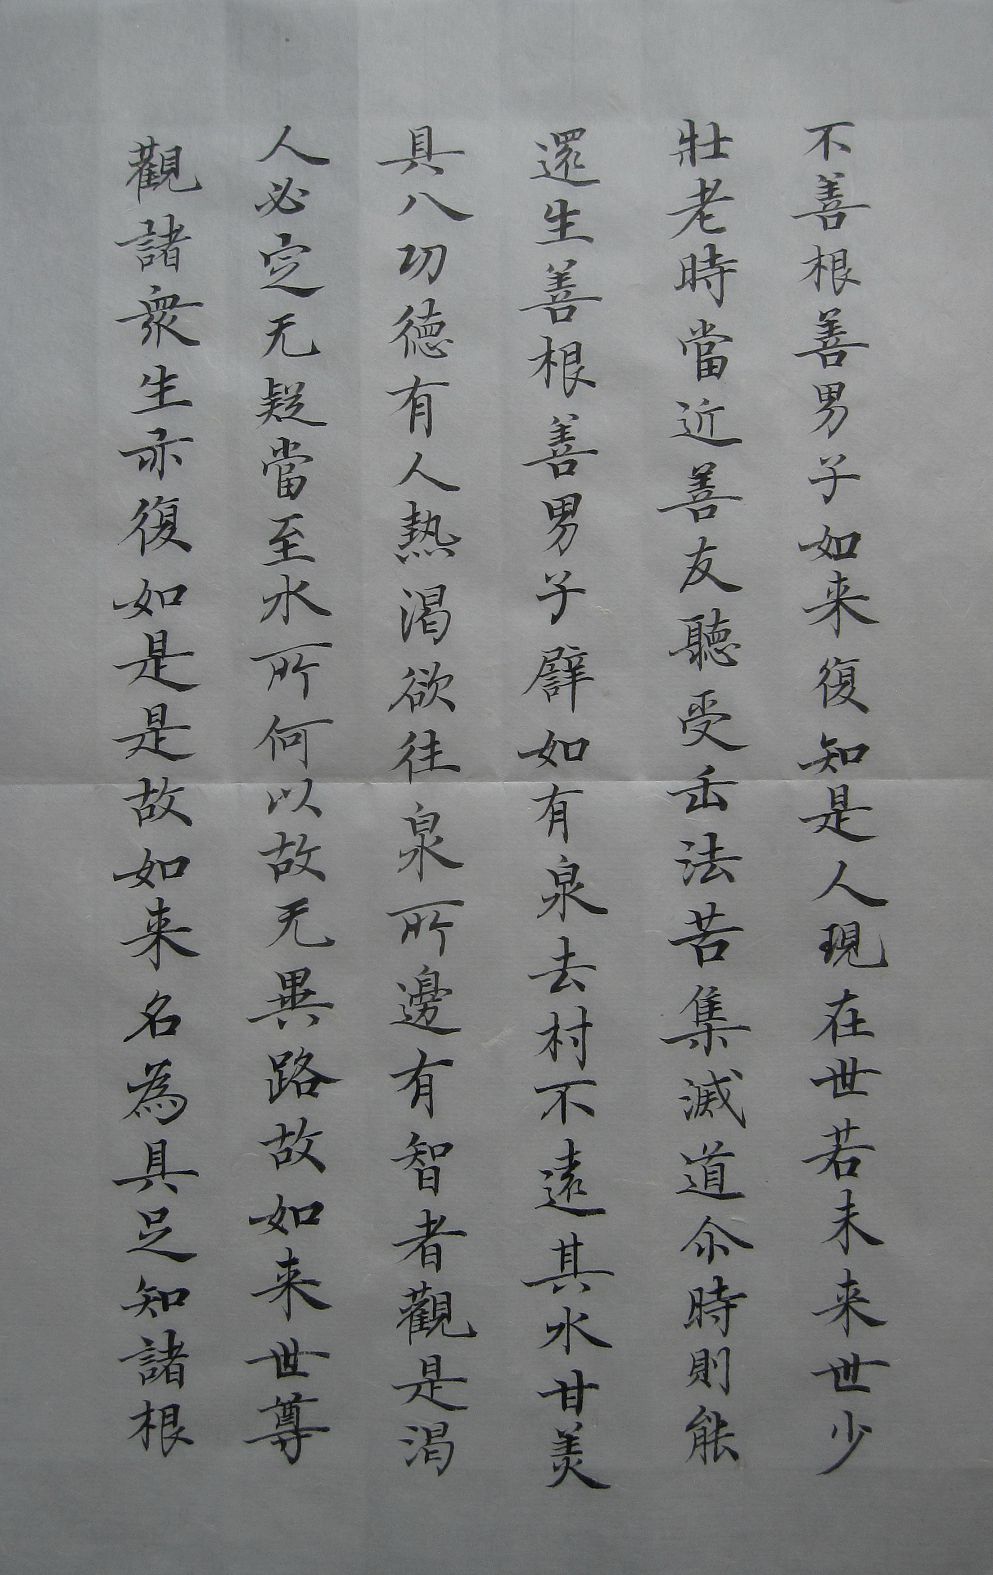 不善根善男子如来復知是人現在世若未来世少
壯老時當近善友聽受正法苦集滅道尒時則能
還生善根善男子譬如有泉去村不遠其水甘美
具八功德有人熱渴欲往泉所邊有智者觀是渴
人必定无疑當至水所何以故无異路故如来世尊
觀諸衆生亦復如是是故如来名為具足知諸根